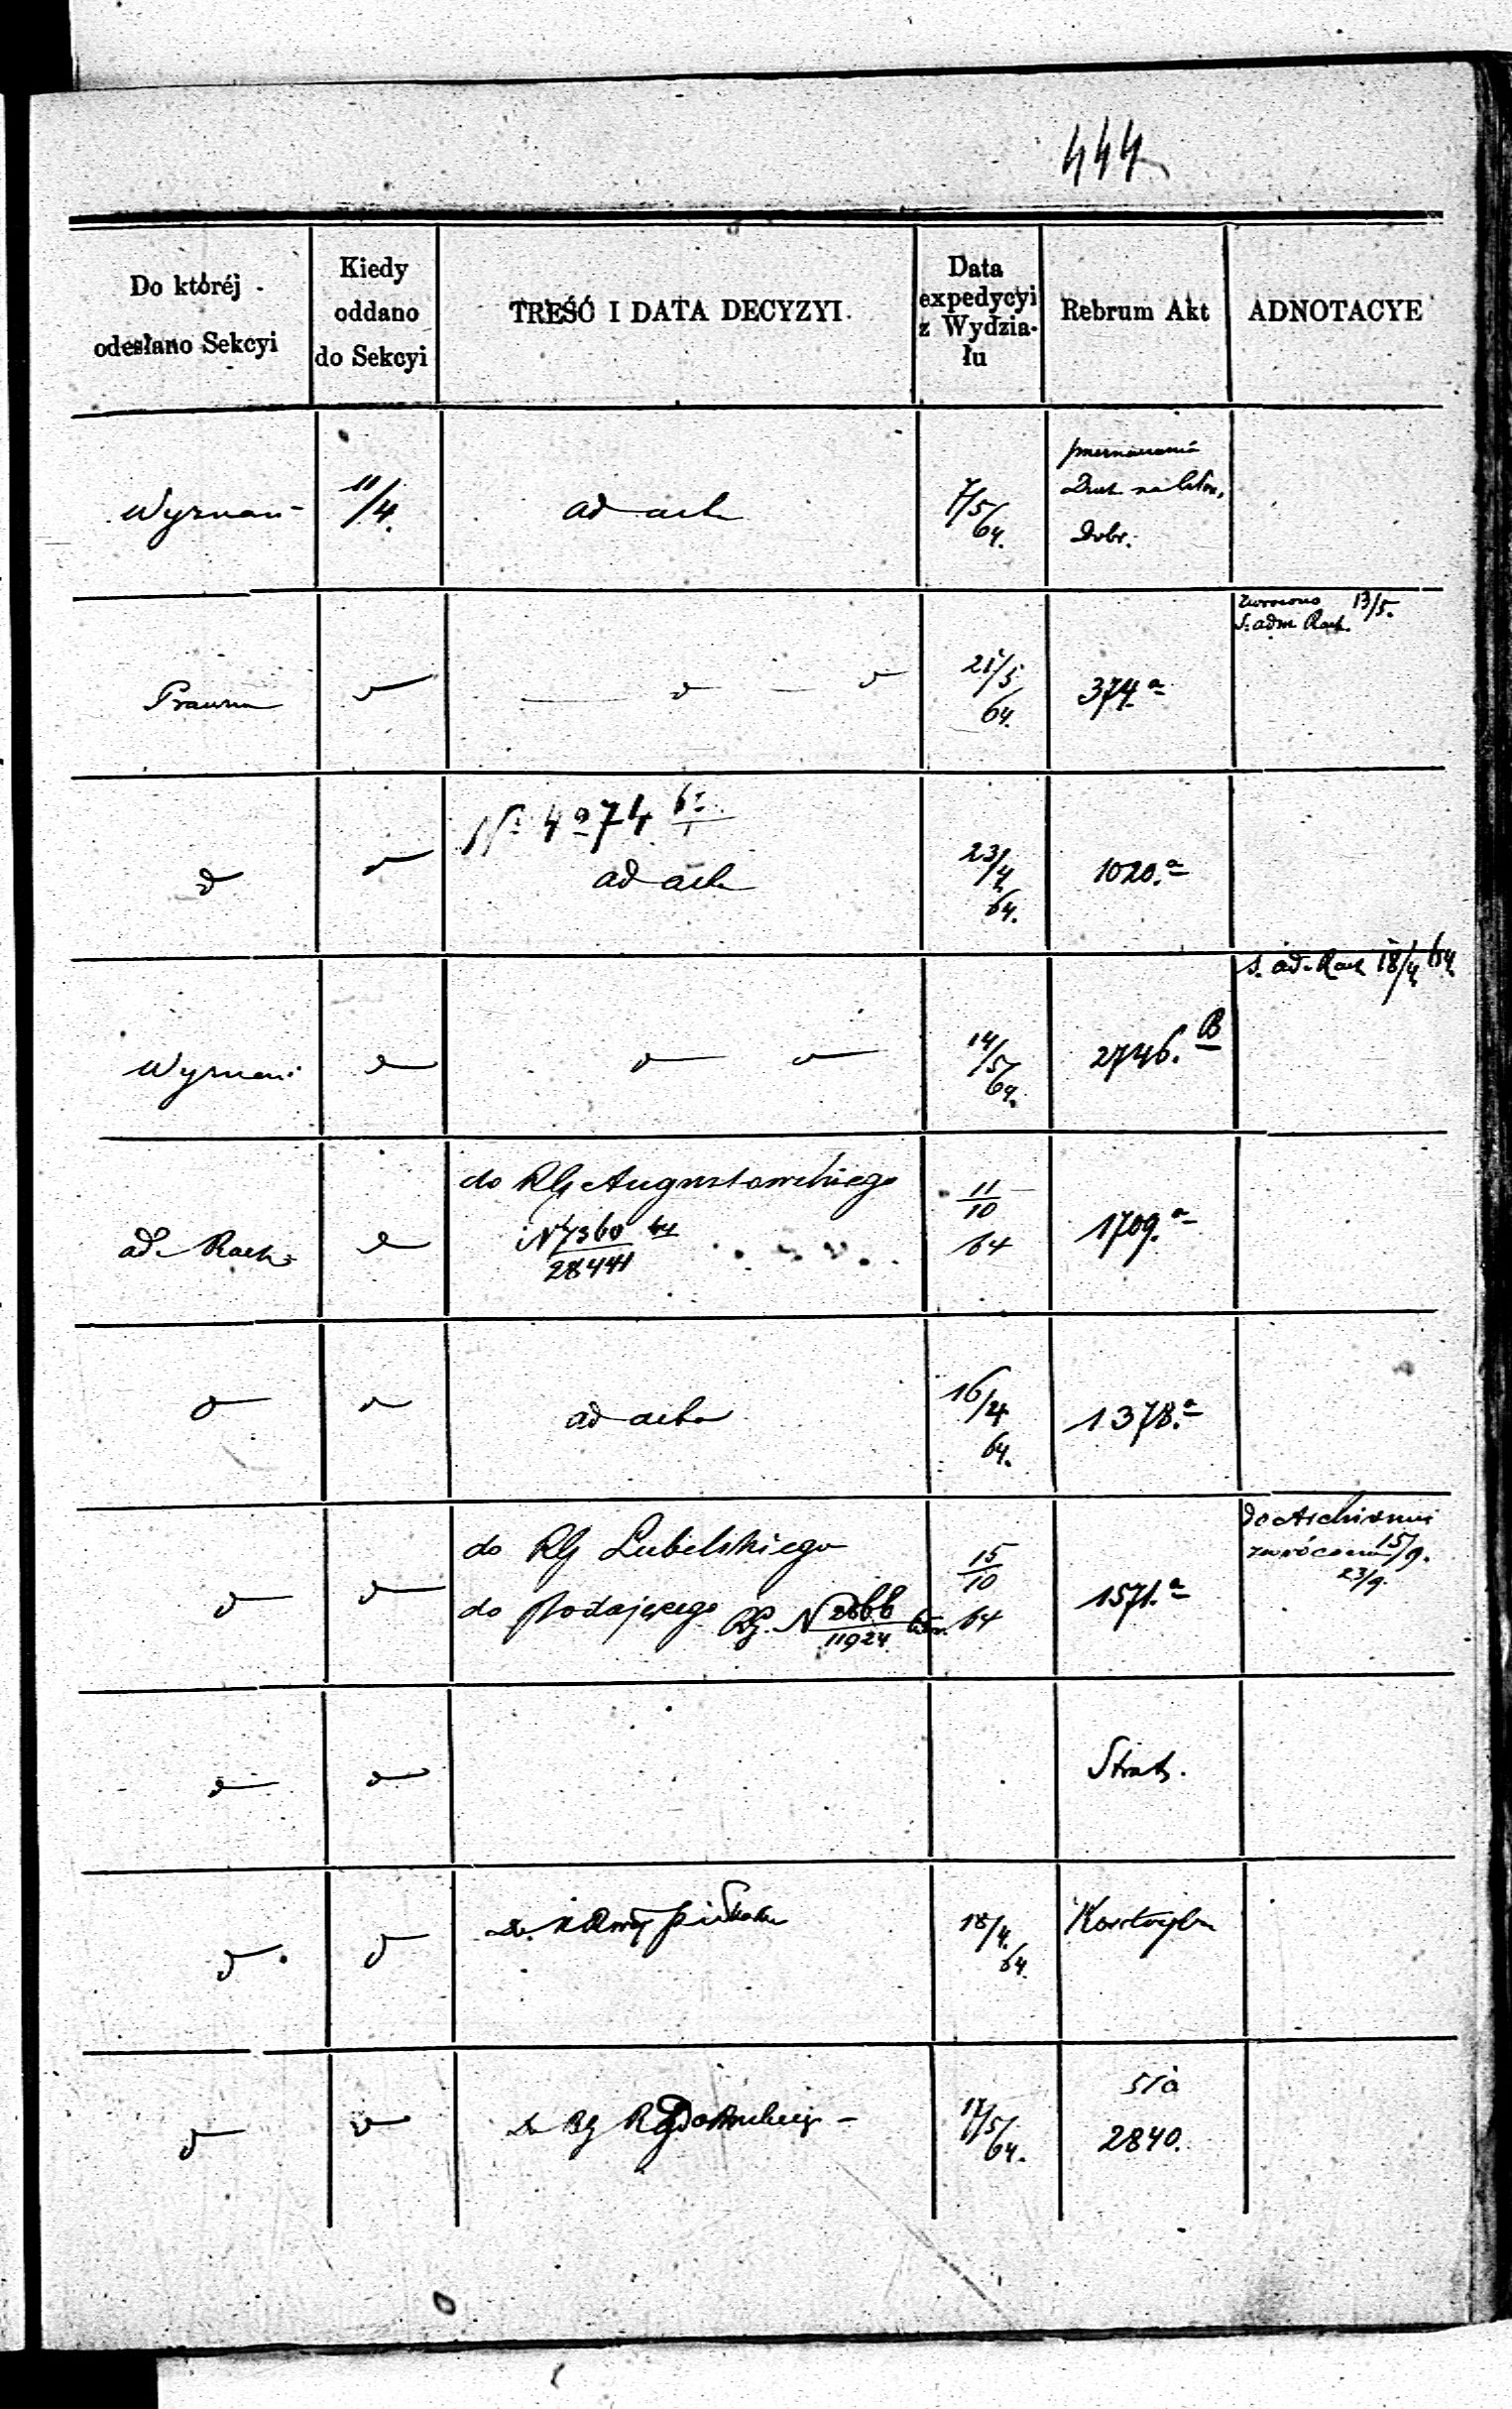 444
Do któréj odesłano Sekcyi
Kiedy oddano do Sekcyi
TREŚĆ I DATA DECYZYI.
Data expedycyi z Wydziału
Rebrum Akt
ADNOTACYE
Wyznań
11/4.
ad acta
7/5 64.
Dobr.
13/5.
S. adm Rach.
Prawna
21/5 64.
374.a
d
№ 4274
ad acta
23/4 64.
1020.a
S. ad. Rach 18/4 64
Wyznań
14/5 64.
2746. B
ad. Rach.
do RG Augustowskiego
N 7360 64
28441
11/10 64
1709.a
ad acta
16/4 64.
1378.a
do RG Lubelskiego
do Podającego RG. N 2866
11924
15/10 64
1571.a
do Archiwum
zwrócono 15/9.
23/9.
Strat.
18/4. 64.
17/5 64.
2840.